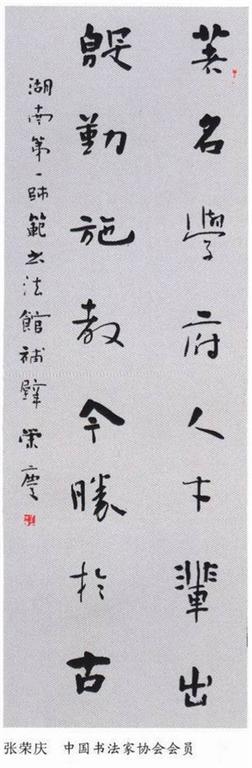 著名學府人才輩出
殷勤施教今勝於古
湖南第一師範書法館補壁榮慶
张荣庆 中国书法家协会会员